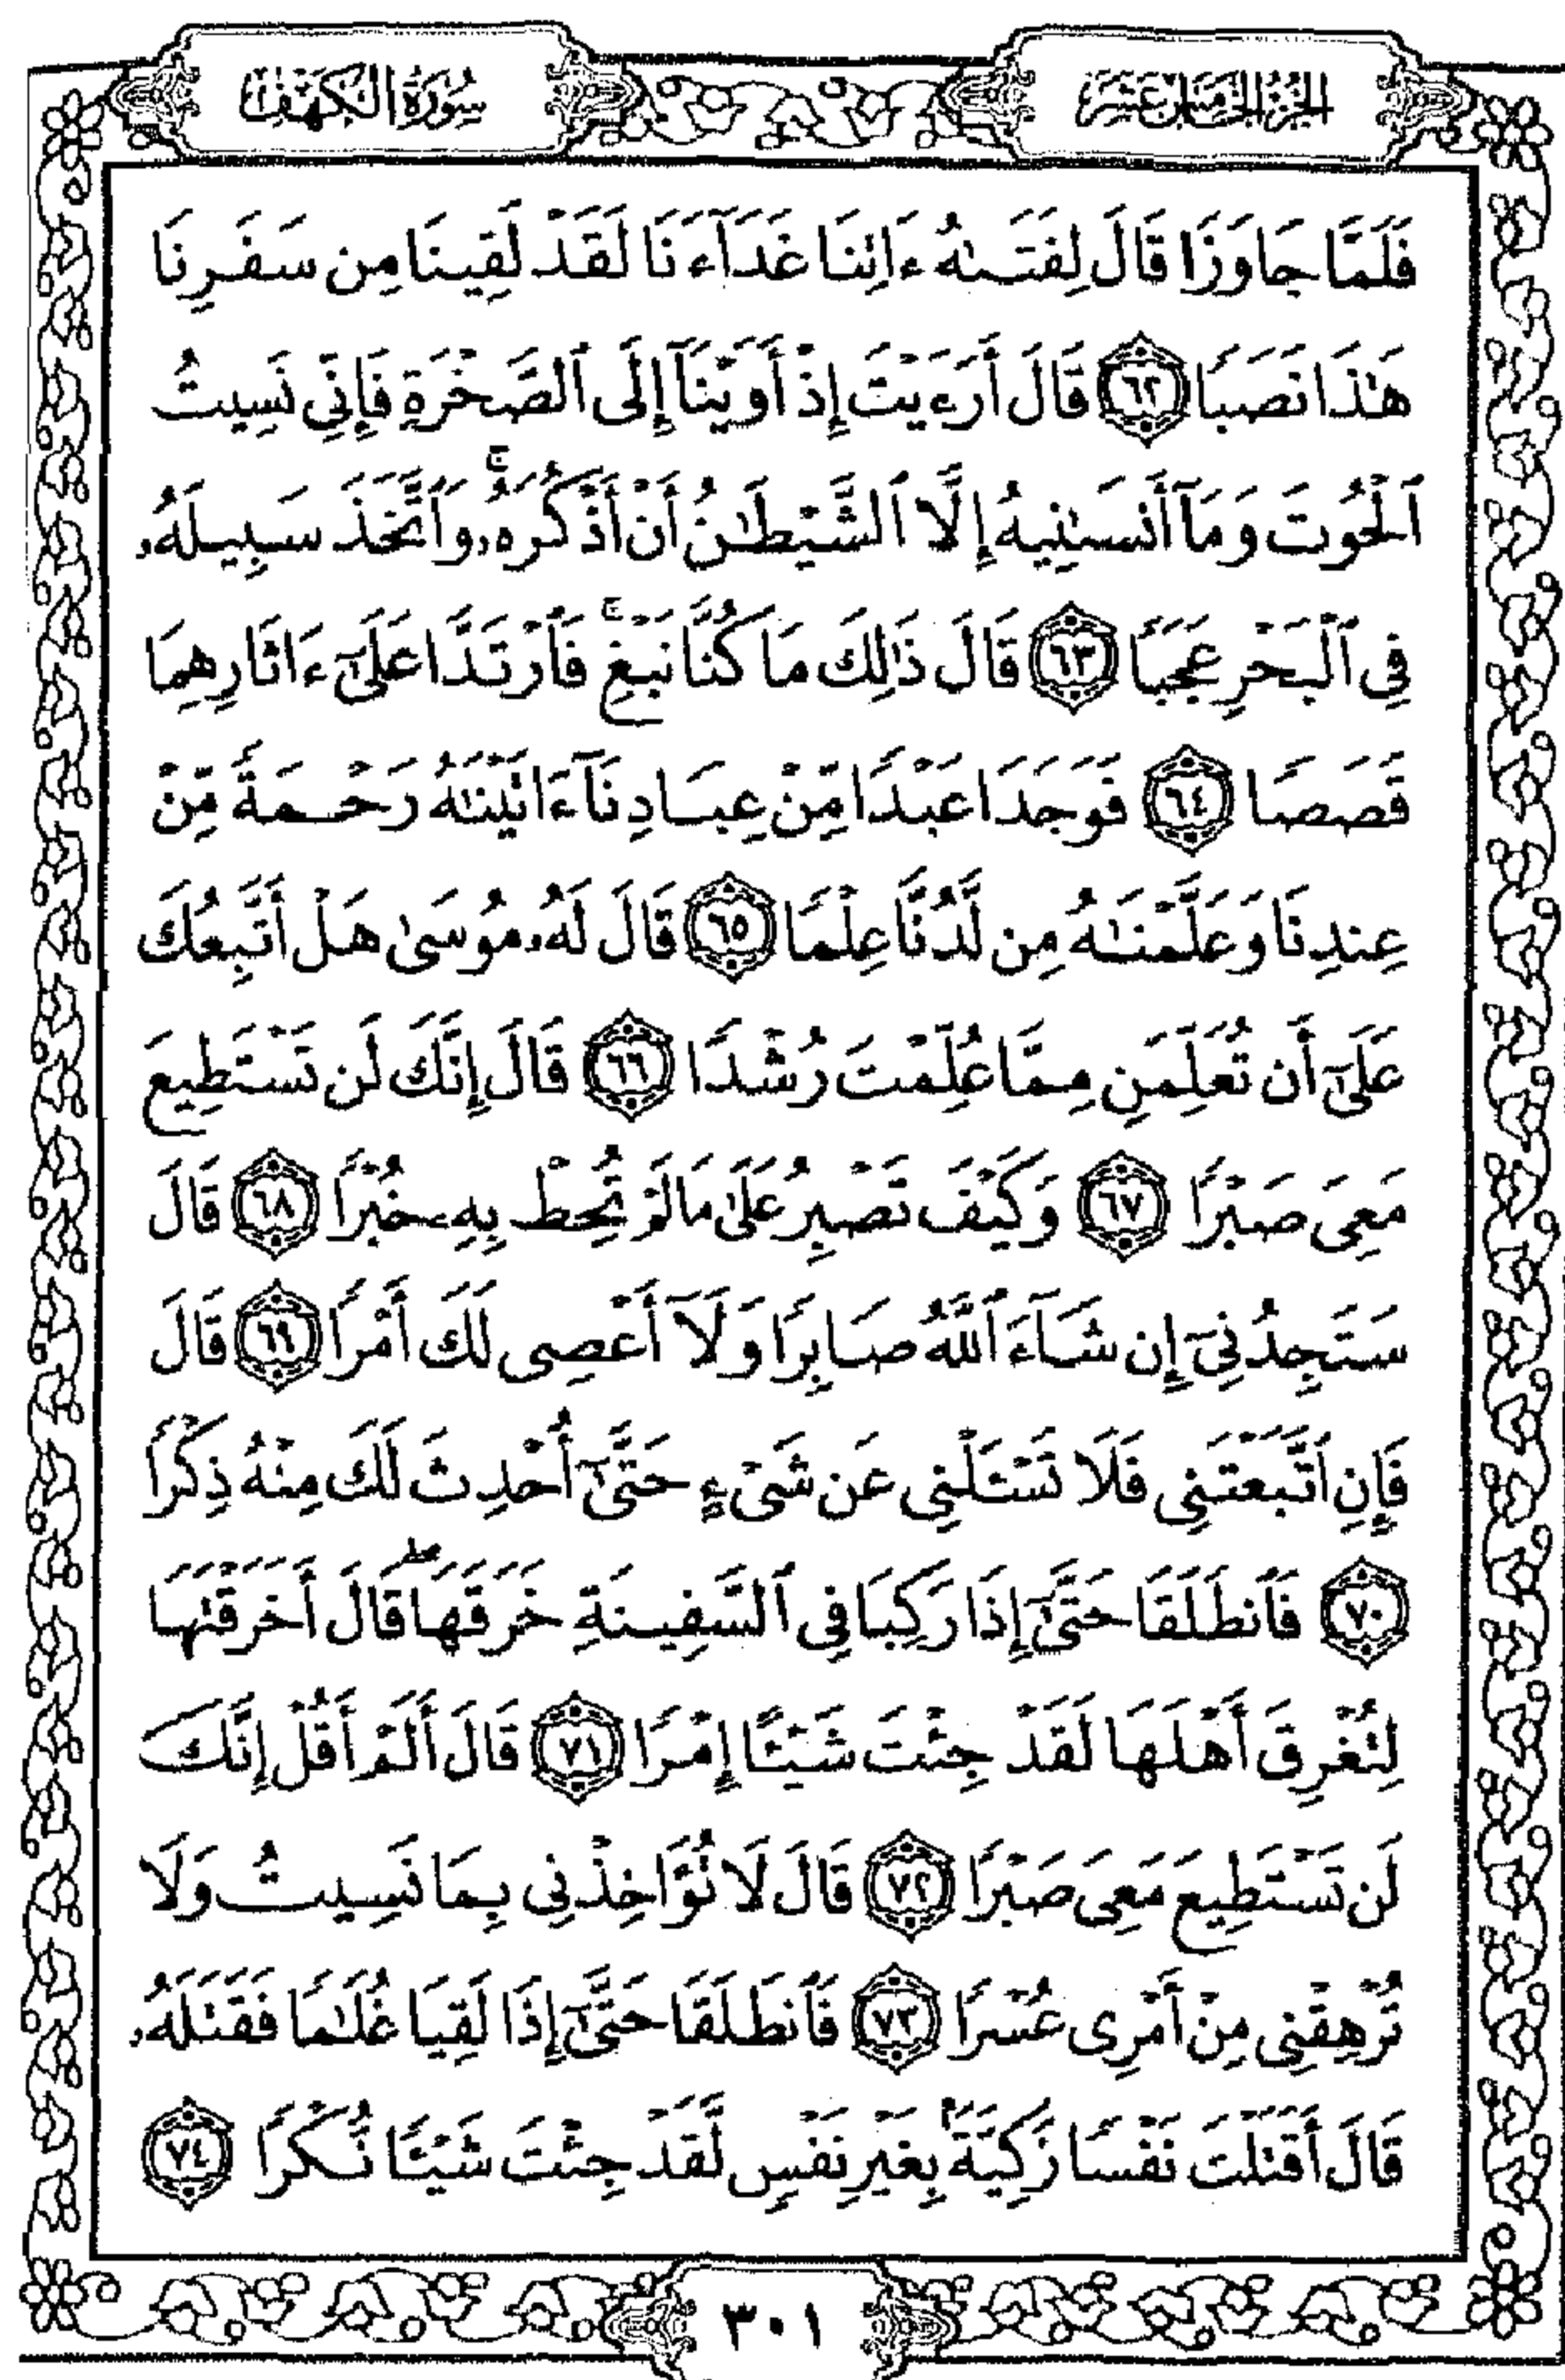 الجزء الخامس عشر
سورة الكهف
فَلَمَّا جَاوَزَا قَالَ لِفَتَىٰهُ ءَاتِنَا غَدَآءَنَا لَقَدْ لَقِينَا مِن سَفَرِنَا
هَٰذَا نَصَبًا ٦٢ قَالَ أَرَءَيْتَ إِذْ أَوَيْنَآ إِلَى ٱلصَّخْرَةِ فَإِنِّى نَسِيتُ
ٱلْحُوتَ وَمَآ أَنسَىٰنِيهُ إِلَّا ٱلشَّيْطَٰنُ أَنْ أَذْكُرَهُۥۚ وَٱتَّخَذَ سَبِيلَهُۥ
فِى ٱلْبَحْرِ عَجَبًا ٦٣ قَالَ ذَٰلِكَ مَا كُنَّا نَبْغِۚ فَٱرْتَدَّا عَلَىٰٓ ءَاثَارِهِمَا
قَصَصًا ٦٤ فَوَجَدَا عَبْدًا مِّنْ عِبَادِنَآ ءَاتَيْنَٰهُ رَحْمَةً مِّنْ
عِندِنَا وَعَلَّمْنَٰهُ مِن لَّدُنَّا عِلْمًا ٦٥ قَالَ لَهُۥ مُوسَىٰ هَلْ أَتَّبِعُكَ
عَلَىٰٓ أَن تُعَلِّمَنِ مِمَّا عُلِّمْتَ رُشْدًا ٦٦ قَالَ إِنَّكَ لَن تَسْتَطِيعَ
مَعِىَ صَبْرًا ٦٧ وَكَيْفَ تَصْبِرُ عَلَىٰ مَا لَمْ تُحِطْ بِهِۦ خُبْرًا ٦٨ قَالَ
سَتَجِدُنِىٓ إِن شَآءَ ٱللَّهُ صَابِرًا وَلَآ أَعْصِى لَكَ أَمْرًا ٦٩ قَالَ
فَإِنِ ٱتَّبَعْتَنِى فَلَا تَسْـَٔلْنِى عَن شَىْءٍ حَتَّىٰٓ أُحْدِثَ لَكَ مِنْهُ ذِكْرًا
٧٠ فَٱنطَلَقَا حَتَّىٰٓ إِذَا رَكِبَا فِى ٱلسَّفِينَةِ خَرَقَهَاۖ قَالَ أَخَرَقْتَهَا
لِتُغْرِقَ أَهْلَهَا لَقَدْ جِئْتَ شَيْـًٔا إِمْرًا ٧١ قَالَ أَلَمْ أَقُلْ إِنَّكَ
لَن تَسْتَطِيعَ مَعِىَ صَبْرًا ٧٢ قَالَ لَا تُؤَاخِذْنِى بِمَا نَسِيتُ وَلَا
تُرْهِقْنِى مِنْ أَمْرِى عُسْرًا ٧٣ فَٱنطَلَقَا حَتَّىٰٓ إِذَا لَقِيَا غُلَٰمًا فَقَتَلَهُۥ
قَالَ أَقَتَلْتَ نَفْسًا زَكِيَّةًۢ بِغَيْرِ نَفْسٍ لَّقَدْ جِئْتَ شَيْـًٔا نُّكْرًا ٧٤
٣٠١